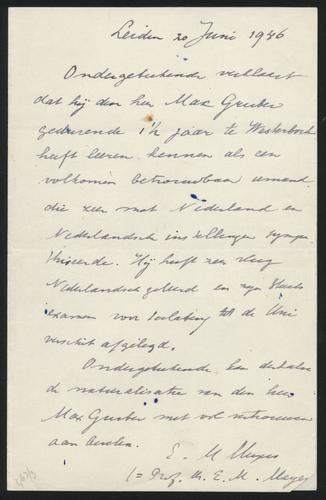 Leiden 20 Juni 1946
Ondergeteekende verklaart
dat hij den heer Max Gruber
gedurende 1½ jaar te Westerbork
heeft leeren kennen als een
volkomen betrouwbaar iemand
die zeer met Nederland en
Nederlandsche instellingen sympa-
thiseerde. Hij heeft zeer vlug
Nederlandsch geleerd en zijn Staats
examen voor toelating tot de Uni
versiteit afgelegd.
Ondergeteekende kan derhalve
de naturalisatie van den heer
Max Gruber met vol vertrouwen
aan bevelen.
E. M. Meijers
(= Prof. Mr. E. M. Meijers